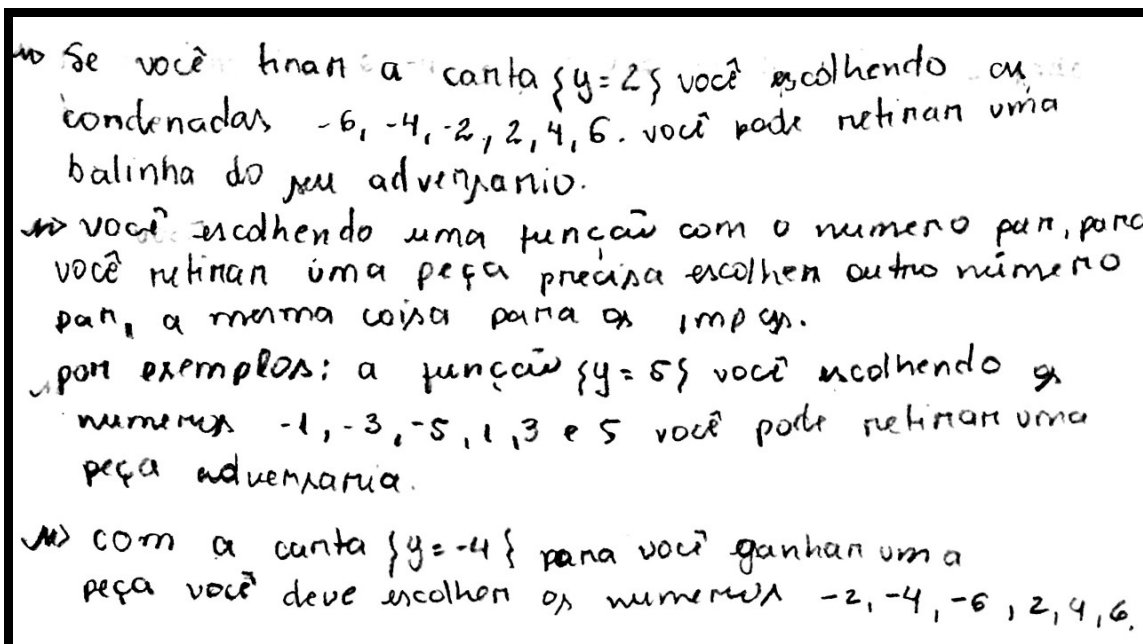 Se você tirar a carta {y=2} você escolhendo as
cordenadas -6, -4, -2, 2, 4, 6. você pode retirar uma
balinha do seu adversario.
você escolhendo uma função com o numero par, para
você retirar uma peça precisa escolher outro número
par, a mesma coisa para os impas.
por exemplos: a função {y=5} você escolhendo os
numeros -1, -3, -5, 1, 3 e 5 você pode retirar uma
peça adversaria.
com a carta {y=-4} para você ganhar uma
peça você deve escolher os numeros -2, -4, -6, 2, 4, 6.